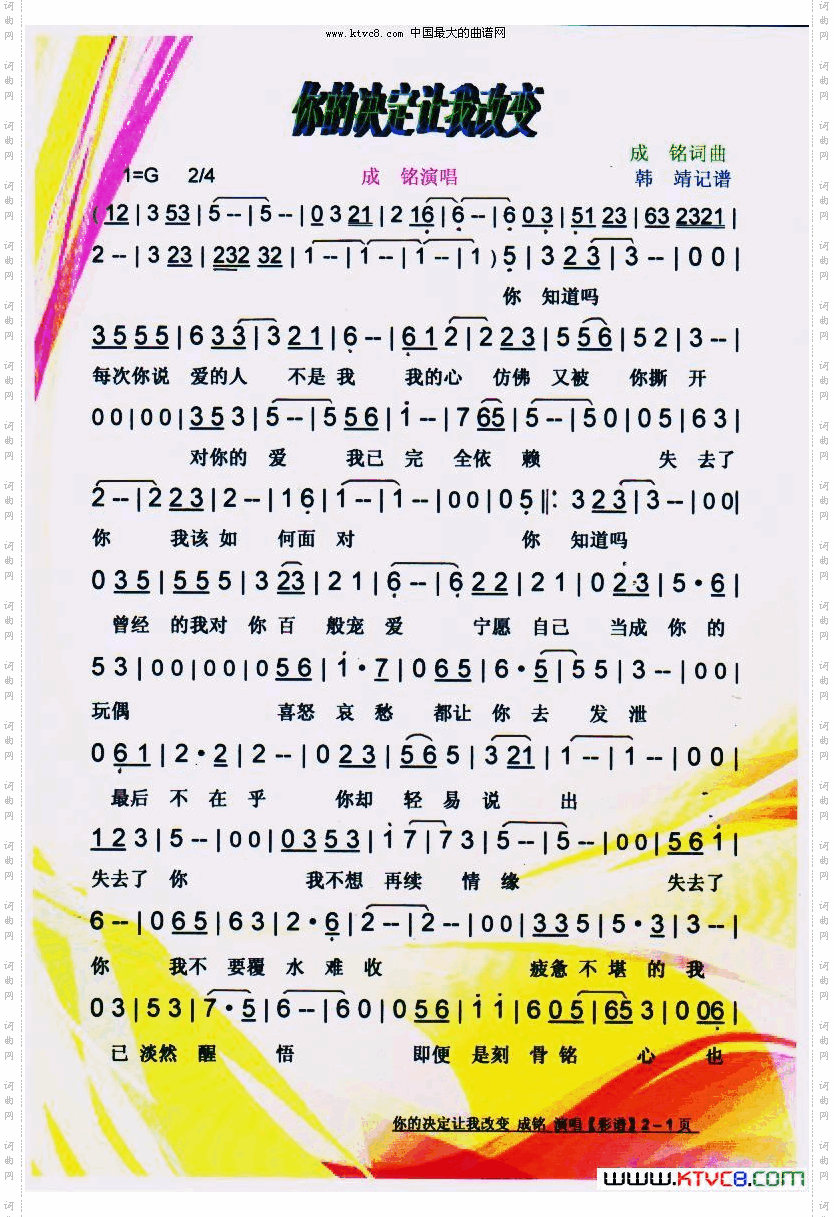 www.ktvc8.com 中国最大的曲谱网
你的决定让我改变
成 铭词曲
1=G 2/4 成 铭演唱 韩 靖记谱
( 12 | 3 53 | 5 -- | 5 -- | 0 3 21 | 2 16 | 6 -- | 6 0 3 | 51 23 | 63 2321 |
2 -- | 3 23 | 232 32 | 1 -- | 1 -- | 1 -- | 1 ) 5 | 3 2 3 | 3 -- | 0 0 |
你 知道吗
3 5 5 5 | 6 3 3 | 3 2 1 | 6 -- | 6 1 2 | 2 2 3 | 5 5 6 | 5 2 | 3 -- |
每次你说 爱的人 不是 我 我的心 仿佛 又被 你撕 开
0 0 | 0 0 | 3 5 3 | 5 -- | 5 5 6 | i -- | 7 65 | 5 -- | 5 0 | 0 5 | 6 3 |
对你的 爱 我已 完 全依 赖 失 去了
2 -- | 2 2 3 | 2 -- | 1 6 | 1 -- | 1 -- | 0 0 | 0 5 ‖: 3 2 3 | 3 -- | 0 0 |
你 我该 如 何面 对 你 知道吗
0 3 5 | 5 5 5 | 3 23 | 2 1 | 6 -- | 6 2 2 | 2 1 | 0 2 3 | 5 · 6 |
曾经 的我对 你 百 般宠 爱 宁愿 自己 当成 你 的
5 3 | 0 0 | 0 0 | 0 5 6 | i · 7 | 0 6 5 | 6 · 5 | 5 5 | 3 -- | 0 0 |
玩偶 喜怒 哀 愁 都让 你 去 发 泄
0 6 1 | 2 · 2 | 2 -- | 0 2 3 | 5 6 5 | 3 21 | 1 -- | 1 -- | 0 0 |
最后 不 在 乎 你却 轻 易 说 出
1 2 3 | 5 -- | 0 0 | 0 3 5 3 | i 7 | 7 3 | 5 -- | 5 -- | 0 0 | 5 6 i |
失去了 你 我不想 再续 情 缘 失去了
6 -- | 0 6 5 | 6 3 | 2 · 6 | 2 -- | 2 -- | 0 0 | 3 3 5 | 5 · 3 | 3 -- |
你 我不 要覆 水 难 收 疲惫 不 堪 的 我
0 3 | 5 3 | 7 · 5 | 6 -- | 6 0 | 0 5 6 | i i | 6 0 5 | 65 3 | 0 06 |
已 淡然 醒 悟 即便 是刻 骨 铭 心 也
你的决定让我改变 成铭 演唱【彩谱】2－1页
www.KTVC8.com
词曲网